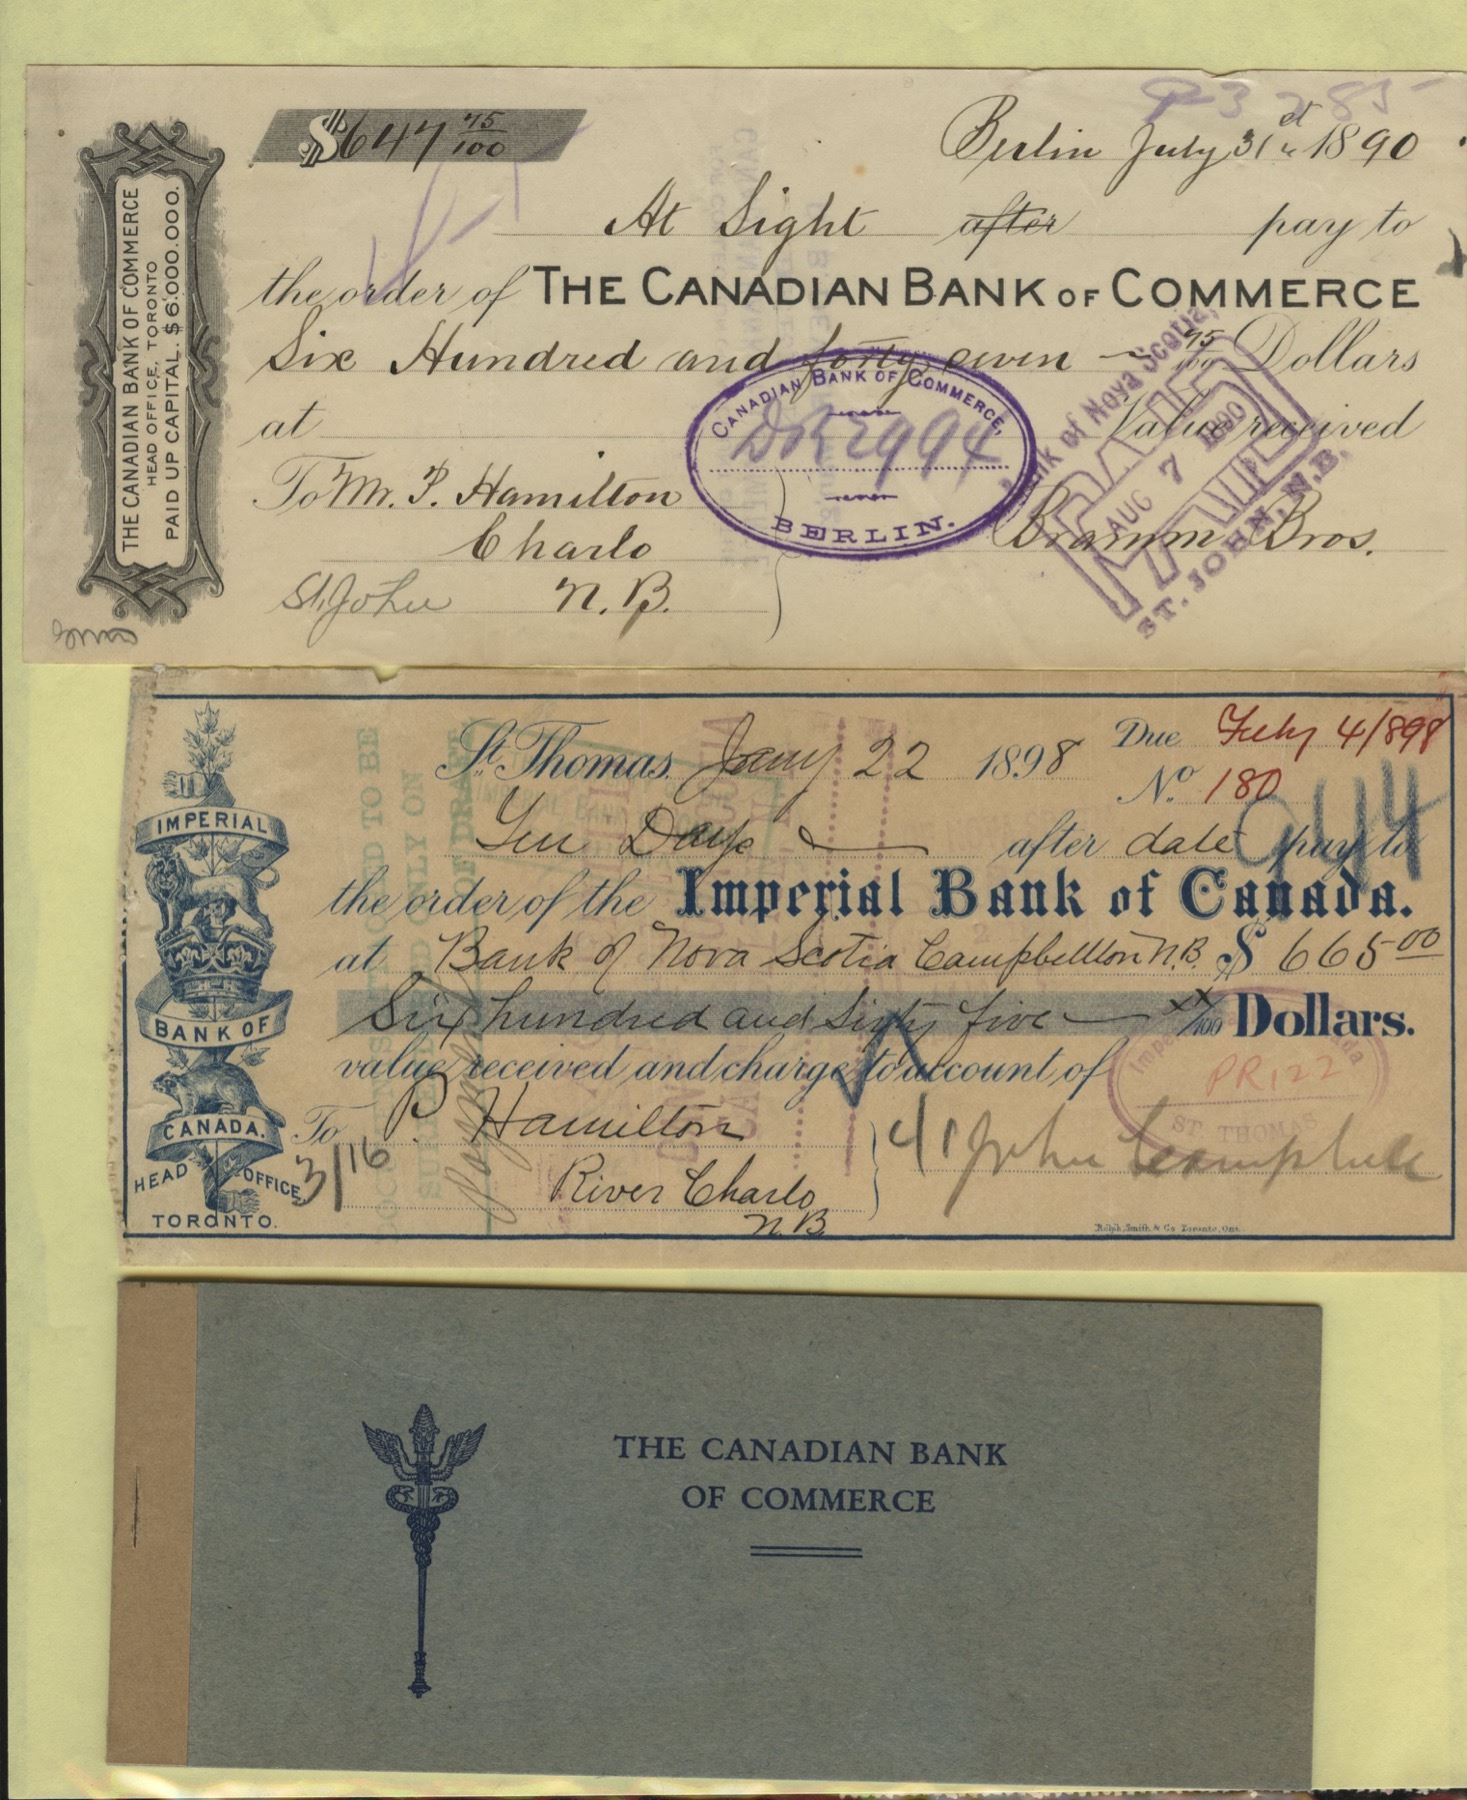 THE CANADIAN BANK OF COMMERCE
HEAD OFFICE, TORONTO
PAID UP CAPITAL. $6.000.000.
$647 75/100
P3285
Berlin July 31st 1890
At Sight after pay to
the order of THE CANADIAN BANK OF COMMERCE
Six Hundred and forty seven 75/100 Dollars
at Value received
To Mr. P. Hamilton
Charlo
St. John N.B.
Bros.
CANADIAN BANK OF COMMERCE,
DR 2994
BERLIN.
Bank of Nova Scotia,
PAID
AUG 7 1890
ST. JOHN, N.B.
IMPERIAL
BANK OF
CANADA.
HEAD OFFICE
TORONTO.
St. Thomas, Jany 22 1898
Due July 4/1898
No. 180
944
Ten Days after date pay to
the order of the Imperial Bank of Canada.
at Bank of Nova Scotia Campbellton N.B. $ 665 00
Six hundred and Sixty five xx/100 Dollars.
value received and charge to account of
To P. Hamilton
River Charlo
N.B.
3/16
41 John Campbell
Imperial Bank of Canada
PR122
ST. THOMAS
DOCUMENTS ATTACHED TO BE
SURRENDERED ONLY ON
Payment OF DRAFT
Rolph, Smith & Co. Toronto, Ont.
THE CANADIAN BANK
OF COMMERCE